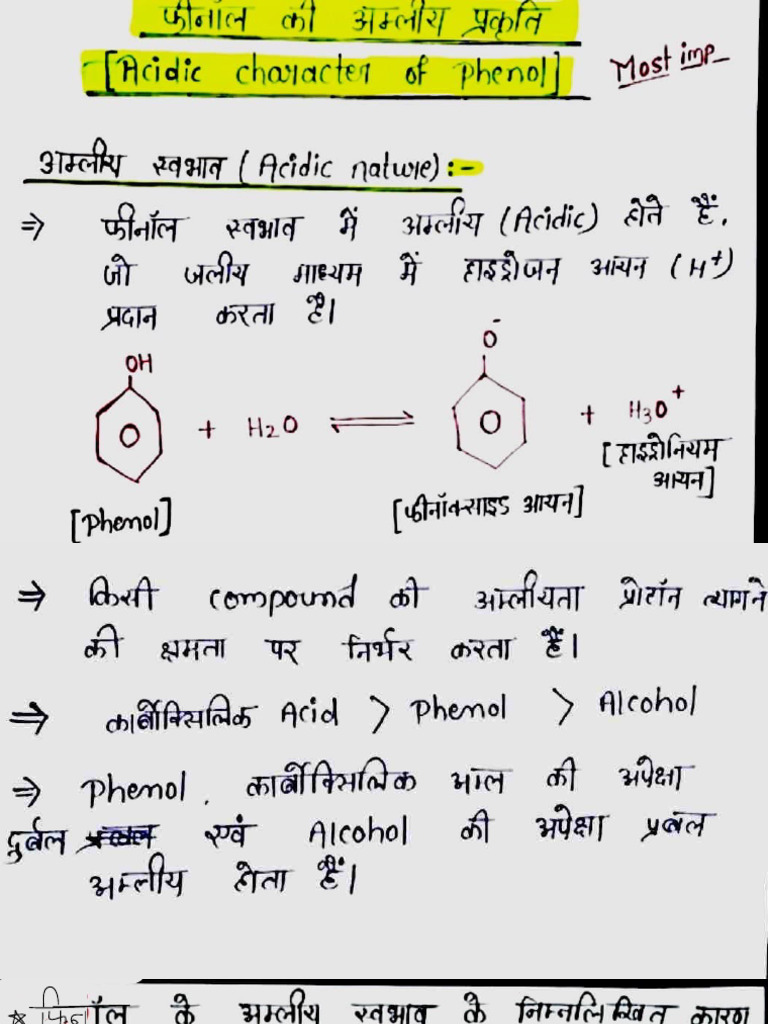 फीनॉल की अम्लीय प्रकृति
[Acidic character of phenol]
Most imp
अम्लीय स्वभाव (Acidic nature) :-
⇒ फीनॉल स्वभाव में अम्लीय (Acidic) होते हैं,
जो जलीय माध्यम में हाइड्रोजन आयन (H+)
प्रदान करता है।
OH
O-
+ H2O ⇌ + H3O+
[Phenol]
[फीनॉक्साइड आयन]
[हाइड्रोनियम
आयन]
⇒ किसी compound की अम्लीयता प्रोटॉन त्यागने
की क्षमता पर निर्भर करता हैं।
⇒ कार्बोक्सिलिक Acid > Phenol > Alcohol
⇒ Phenol, कार्बोक्सिलिक अम्ल की अपेक्षा
दुर्बल एवं Alcohol की अपेक्षा प्रबल
अम्लीय होता हैं।
के अम्लीय स्वभाव के निम्नलिखित कारण